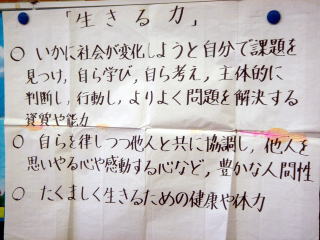 「生きる力」
○ いかに社会が変化しようと自分で課題を
見つけ,自ら学び,自ら考え,主体的に
判断し,行動し,よりよく問題を解決する
資質や能力
○ 自らを律しつつ他人と共に協調し,他人を
思いやる心や感動する心など,豊かな人間性
○ たくましく生きるための健康や体力